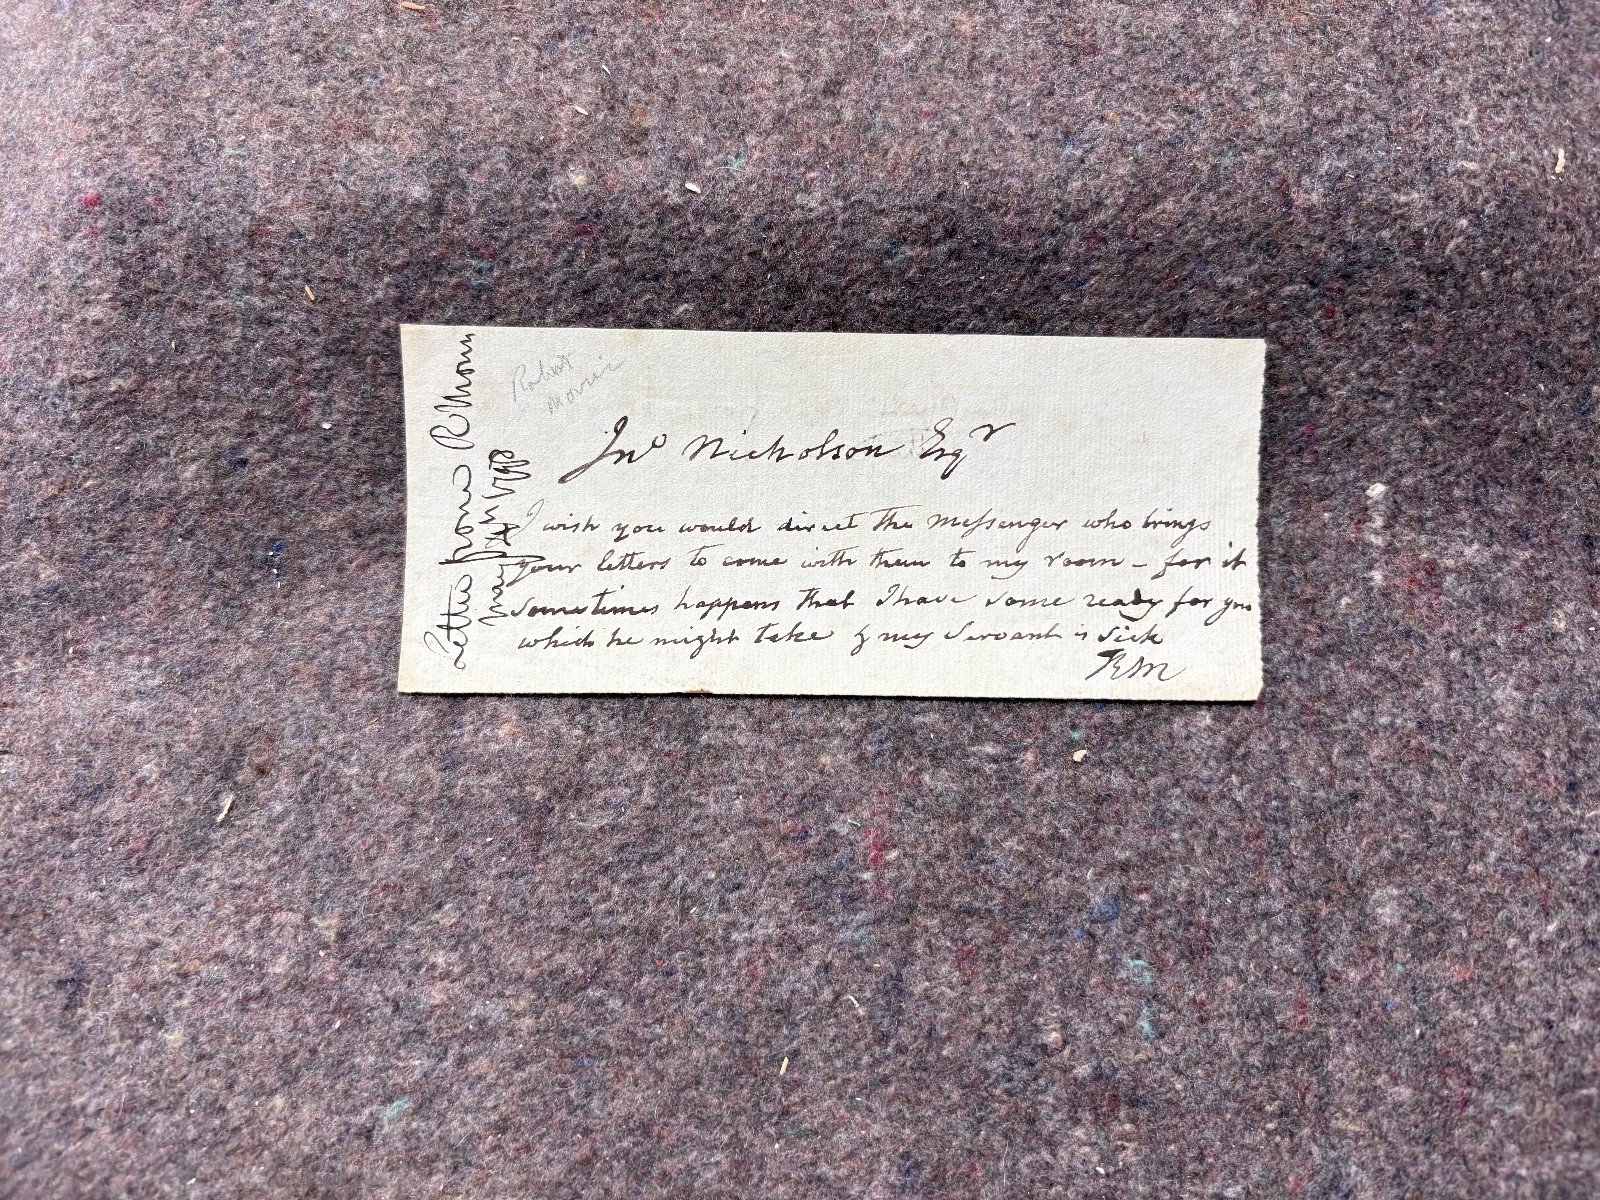 Letter from R Morris
May 24th 1798
Robert
Morris
Jnº Nicholson Esqʳ
I wish you would direct the Messenger who brings
your letters to come with them to my room – for it
sometimes happens that I have some ready for you
which he might take & my Servant is Sick
RM